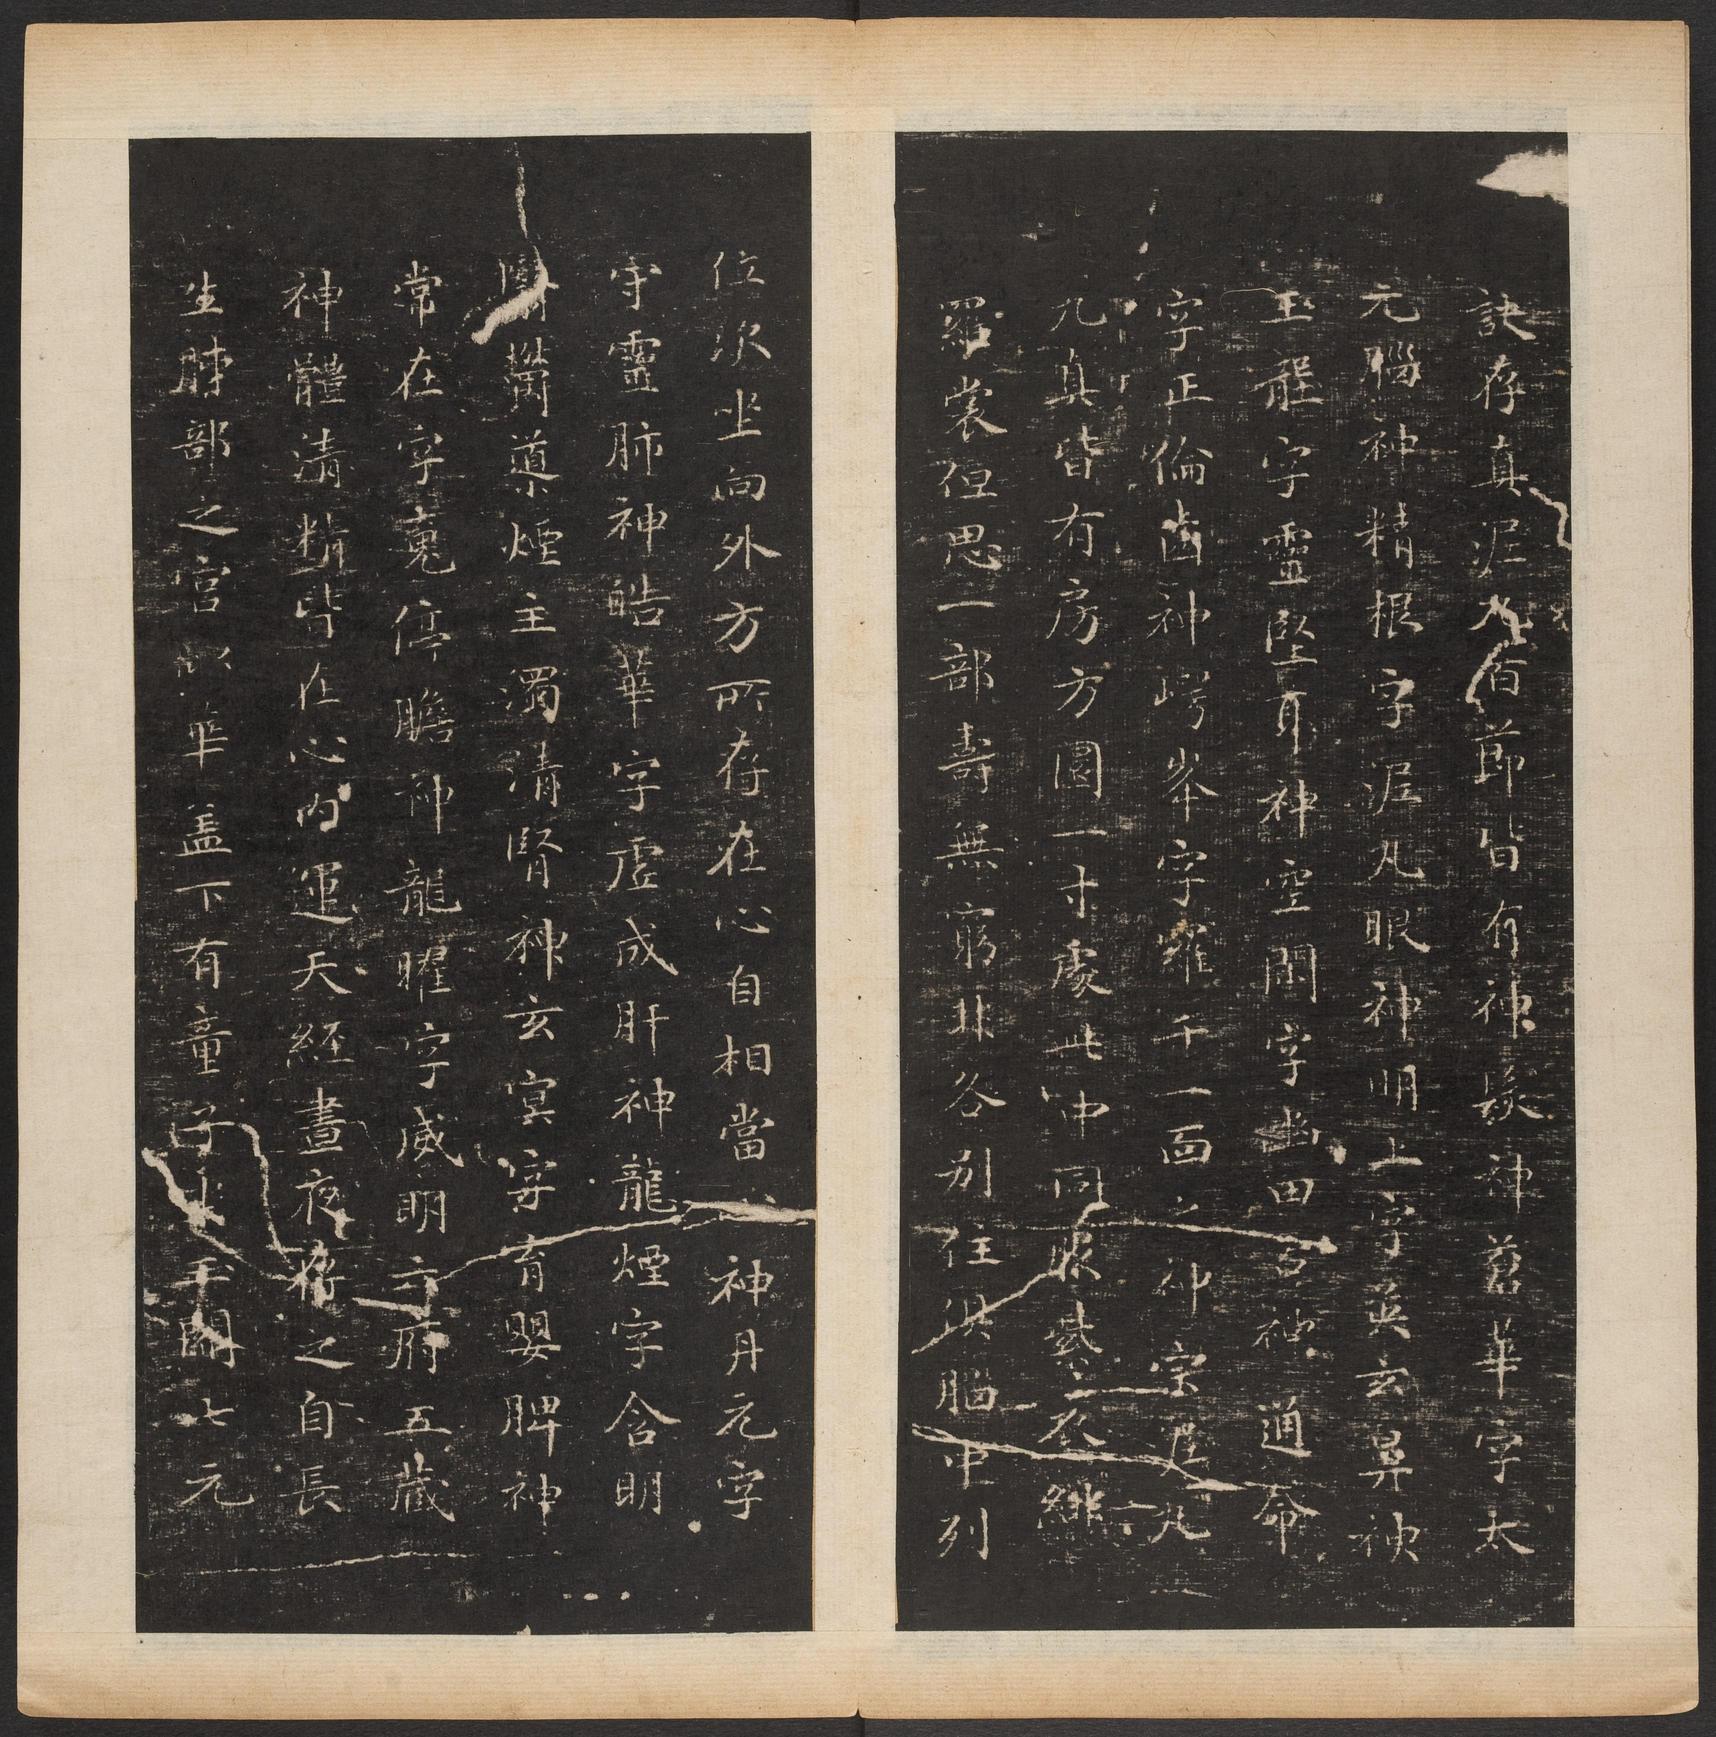 訣存真泥丸百節皆有神髮神蒼華字太
元腦神精根字泥丸眼神明上字英玄鼻神
玉壟字靈堅耳神空閑字幽田舌神通命
字正倫齒神崿峯字羅千一面之神宗泥丸
九真皆有房方圓一寸處此中同服紫衣緋
羅裳但思一部壽無窮非各別住俱腦中列
位次坐向外方所存在心自相當心神丹元字
守靈肺神皓華字虛成肝神龍煙字含明
翳鬱導煙主濁清腎神玄冥字育嬰脾神
常在字魂停膽神龍曜字威明六府五藏
神體清精皆在心內運天經晝夜存之自長
生肺部之宮似華蓋下有童子坐玉闕七元